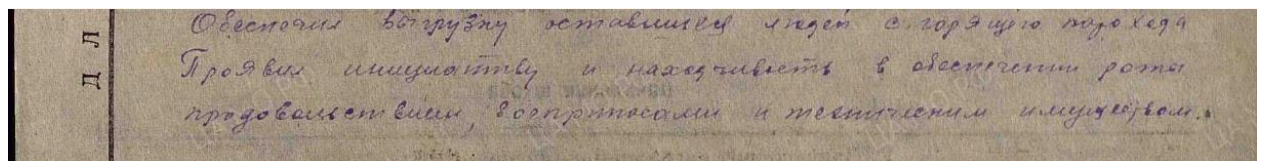 Обеспечил выгрузку оставшихся людей с горящего парохода
Проявил инициативу и находчивость в обеспечении роты
продовольствием, боеприпасами и техническим имуществом.
Д Л